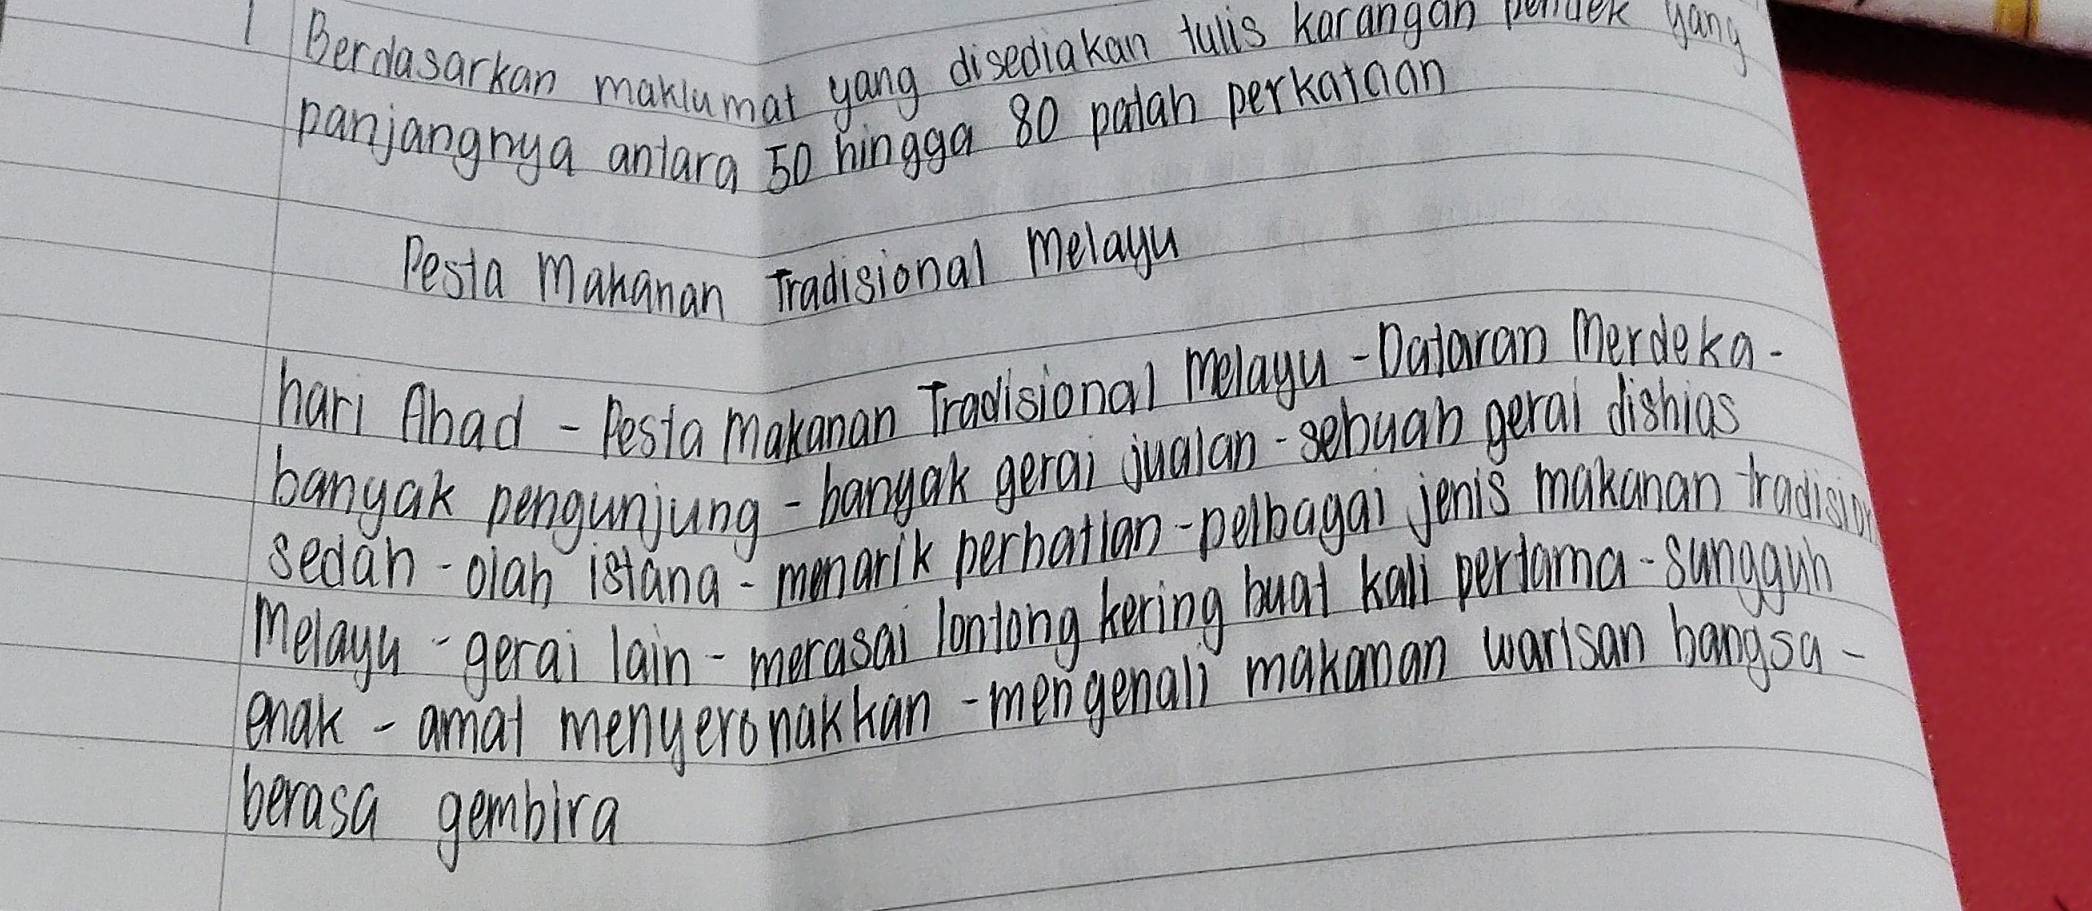 1 Berdasarkan maklumat yang disediakan tulis karangan pendek yang
panjangnya antara 50 hingga 80 patah perkataan
Pesta Makanan Tradisional Melayu
hari Ahad - Pesta Makanan Tradisional Melayu - Dataran Merdeka -
banyak pengunjung - banyak gerai jualan - sebuah gerai dishias
sedah - olah istana - menarik perhatian - pelbagai jenis makanan tradision
Melayu - gerai lain - merasai lontong kering buat kali pertama - sungguh
enak - amat menyeronakkan - mengenali makanan warisan bangsa -
berasa gembira